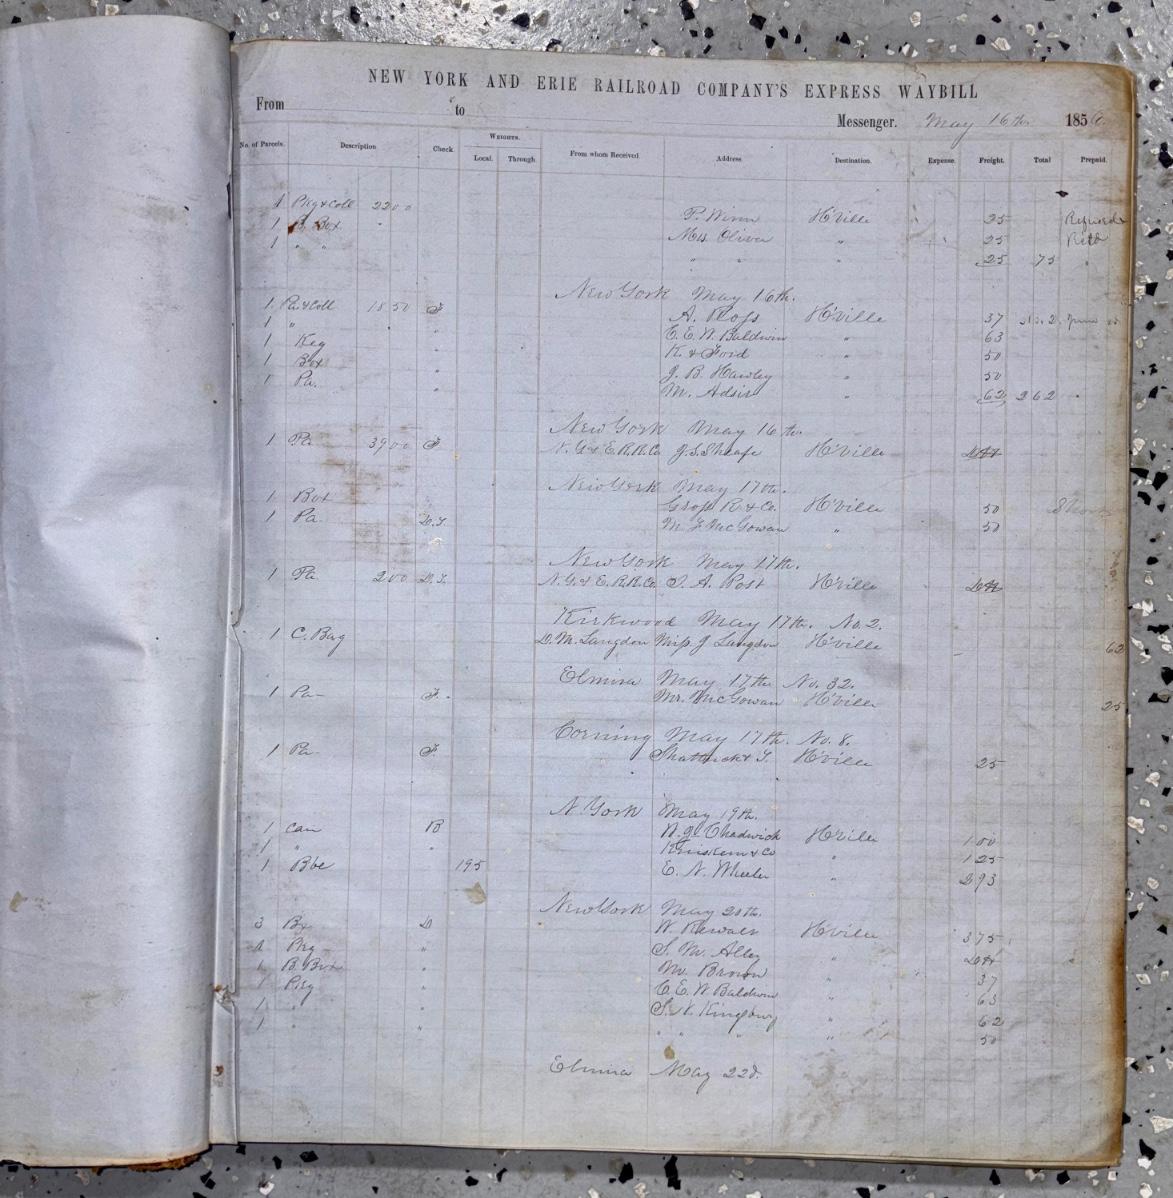 NEW YORK AND ERIE RAILROAD COMPANY'S EXPRESS WAYBILL
From to Messenger. May 16th 1856
No. of Parcels. Description Check. WEIGHTS. Local. Through. From whom Received. Address. Destination. Expense. Freight. Total Prepaid.
1 Pkg & Coll 2200
1 B. Box " P. Winn H'ville 25
1 " " Mrs Oliver " 25
" " " 25 75
New York May 16th.
1 Pa. & Coll 1850 F A. Ross H'ville 37
1 " " C. E. W. Baldwin " 63
1 Keg " K. & Ford " 50
1 Box " J. B. Hawley " 50
1 Pa. " M. Adsit " 62 262
New York May 16th.
1 Pa. 3900 F N. Y. & E. R. R. Co J. S. Sheafe H'ville DH
New York May 17th.
1 Box Gross R. & Co. H'ville 50
1 Pa. D.F. M. J. McGowan " 50
New York May 17th.
1 Pa 200 D.F. N. Y. & E. R. R. Co. I. A. Post H'ville DH
Kirkwood May 17th. No. 2.
1 C. Bag D. M. Langdon Miss J Langdon H'ville 62
Elmira May 17th No. 32.
1 Pa F. Mr. McGowan H'ville 25
Corning May 17th. No. 8.
1 Pa F. Shattuck & T. H'ville 25
N. York May 19th.
1 Can B W. J. Chadwick H'ville 100
1 " " & Co " 125
1 Bbl 195 E. N. Wheeler " 293
New York May 20th.
3 Bx D W. H'ville 375
1 Pkg " S. M. Alley " DH
1 B. Box " M. Brown " 37
1 Pkg " C. E. W. Baldwin " 63
1 " " S. N. Kingbury " 62
1 " " " " " 50
Elmira May 22d.